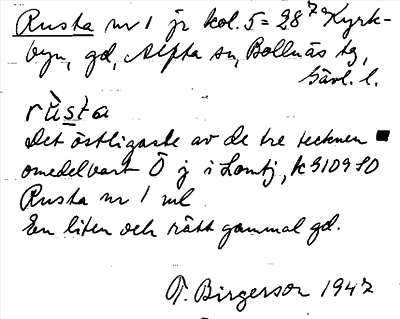 Rusta nr 1 jr kol. 5 = 28⁷ᵃ Kyrk-
byn, gd, Alfta sn, Bollnäs tg,
Gävl. l.
rùsta
Det östligaste av de tre tecknen
omedelbart Ö j i Lomtj, k 9109 SO
Rusta nr 1 ml
En liten och rätt gammal gd.
T. Birgerson 1947